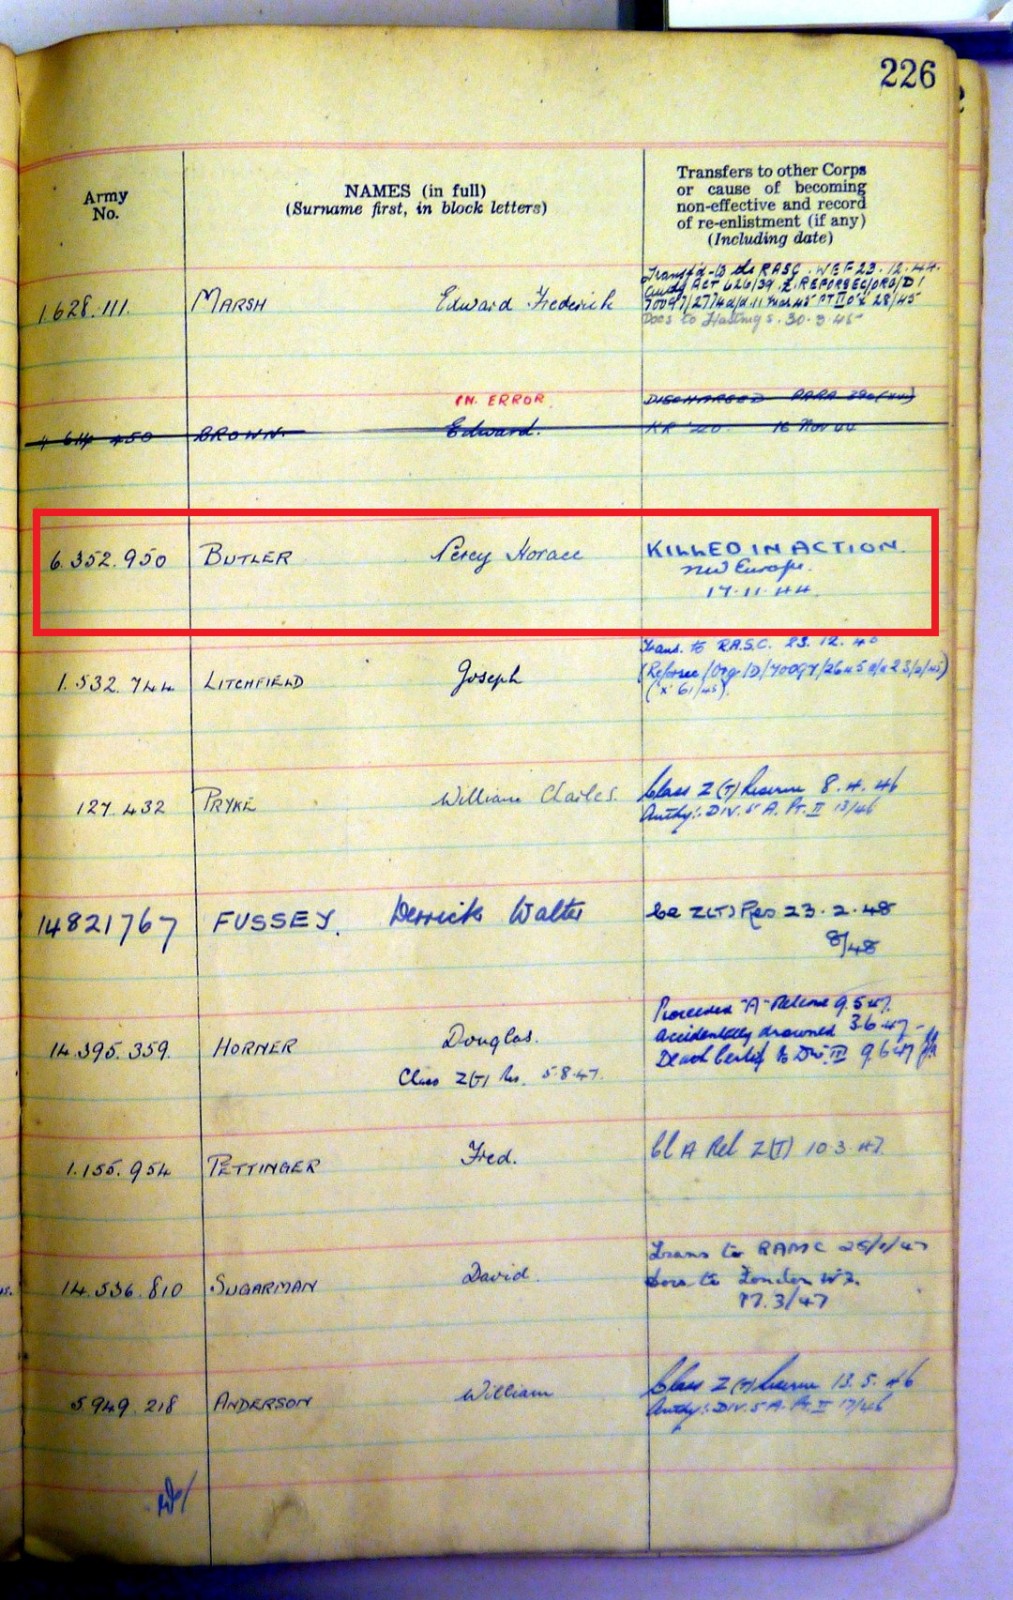 226
Army
No.
NAMES (in full)
(Surname first, in block letters)
Transfers to other Corps
or cause of becoming
non-effective and record
of re-enlistment (if any)
(Including date)
1.628.111. MARSH Edward Frederick
Transf'd to the RASC. WEF 23.12.44.
Docs to Hastings. 30.3.45
IN ERROR
DISCHARGED PARA
BROWN. Edward. 16 Nov 44
6.352.950 BUTLER Percy Horace KILLED IN ACTION.
NW Europe.
17.11.44.
Trans. to R.A.S.C. 23.12.
1.532.744 LITCHFIELD Joseph
127.432 PRYKE William Charles. Class Z(T) Reserve 8.4.46
Authy:. DIV. 5 A. Pt. II 13/46
14821767 FUSSEY. Derrick Walter Z(T) Res 23.2.48
8/48
Proceeded "A" Release 9.5.47.
accidentally drowned 3.6.47
14.395.359. HORNER Douglas. Death Certif to 9.6.47
Class Z(T) Res. 5.8.47.
1.155.954 PETTINGER Fred. Cl A Rel Z(T) 10.3.47.
Trans to RAMC
14.536.810 SUGARMAN David. Docs to London W2.
17.3/47
5949.218 ANDERSON William Class Z(T) Reserve 13.5.46
Authy:. DIV. 5 A. Pt. II 17/46